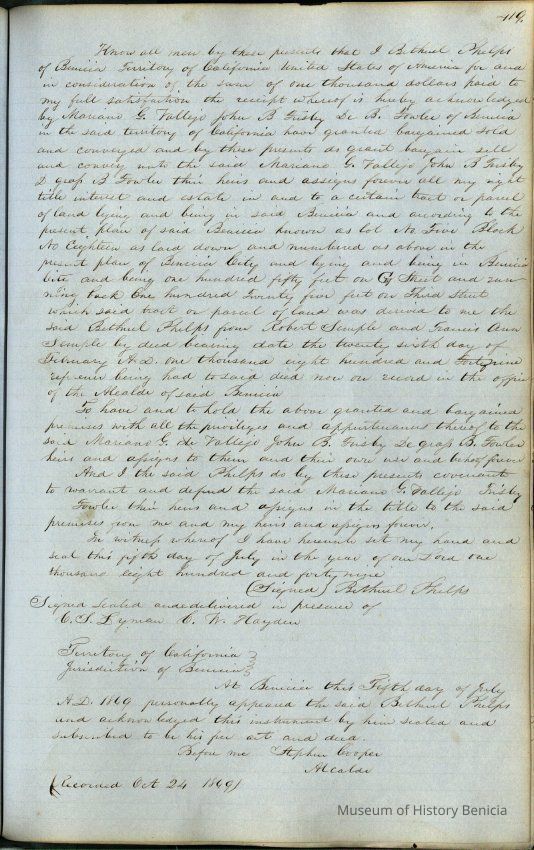 119.
Know all men by these presents that I Bethuel Phelps
of Benicia Territory of California United States of America for and
in consideration of the sum of one thousand dollars paid to
my full satisfaction the receipt whereof is hereby acknowledged
by Mariano G. Vallejo John B Frisby De B. Fowler of Benicia
in the said territory of California have granted bargained sold
and conveyed and by these presents do grant bargain sell
and convey unto the said Mariano G. Vallejo John B Frisby
D. graf B Fowler their heirs and assigns forever all my right
title interest and estate in and to a certain tract or parcel
of land lying and being in said Benicia and according to the
present plan of said Benicia known as lot No Five Block
No Eighteen as laid down and numbered as above in the
present plan of Benicia City and lying and being in Benicia
City and being one hundred fifty feet on G Street and run-
ning back One hundred Twenty five feet on Third Street
which said tract or parcel of land was derived to me the
said Bethuel Phelps from Robert Semple and Francis Ann
Semple by deed bearing date the twenty sixth day of
February A.D. one thousand eight hundred and forty nine
reference being had to said deed now on record in the office
of the Alcalde of said Benicia
To have and to hold the above granted and bargained
premises with all the privileges and appurtenances thereof to the
said Mariano G. de Vallejo John B. Frisby De graf B. Fowler
heirs and assigns to them and their own use and behoof forever
And I the said Phelps do by these presents covenant
to warrant and defend the said Mariano G. Vallejo Frisby
Fowler their heirs and assigns in the title to the said
premises from me and my heirs and assigns forever.
In witness whereof I have hereunto set my hand and
seal this fifth day of July in the year of our Lord one
thousand eight hundred and forty nine
(Signed) Bethuel Phelps
Signed sealed and delivered in presence of
C. S. Lyman C. W. Hayden
Territory of California
Jurisdiction of Benicia
At Benicia this Fifth day of July
A.D. 1849 personally appeared the said Bethuel Phelps
and acknowledged this instrument by him sealed and
subscribed to be his free act and deed.
Before me Stephen Cooper
Alcalde
(Recorded Oct 24 1849)
Museum of History Benicia